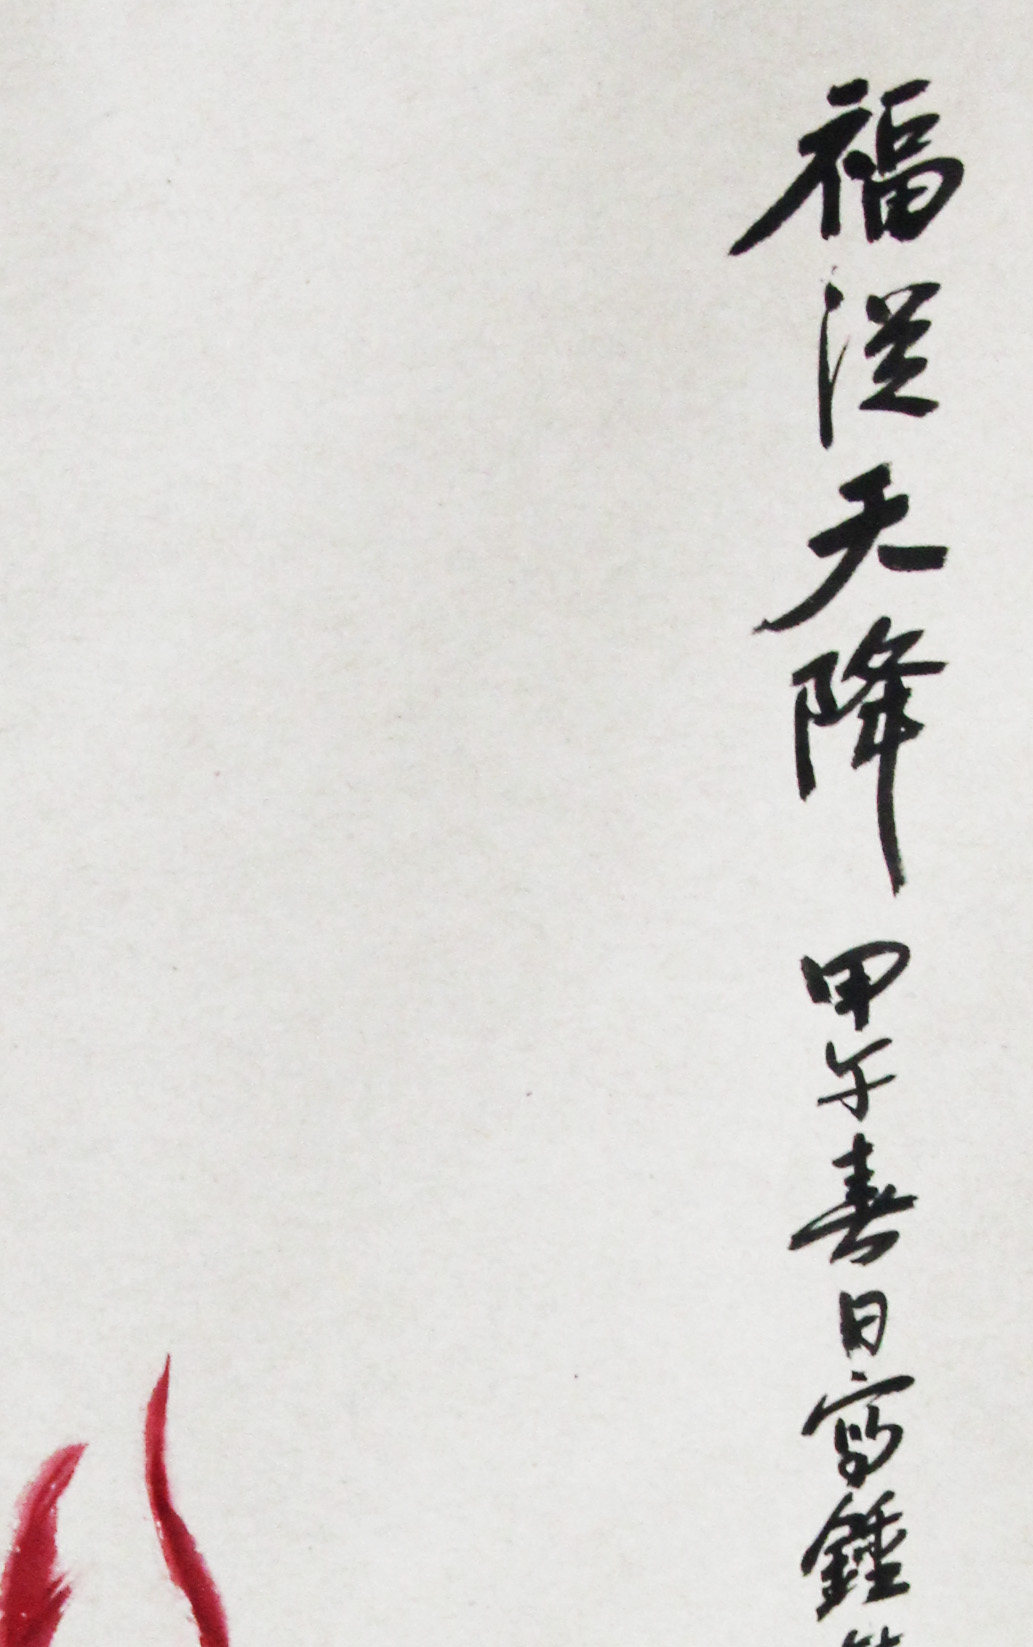 福從天降甲午春日寫鍾